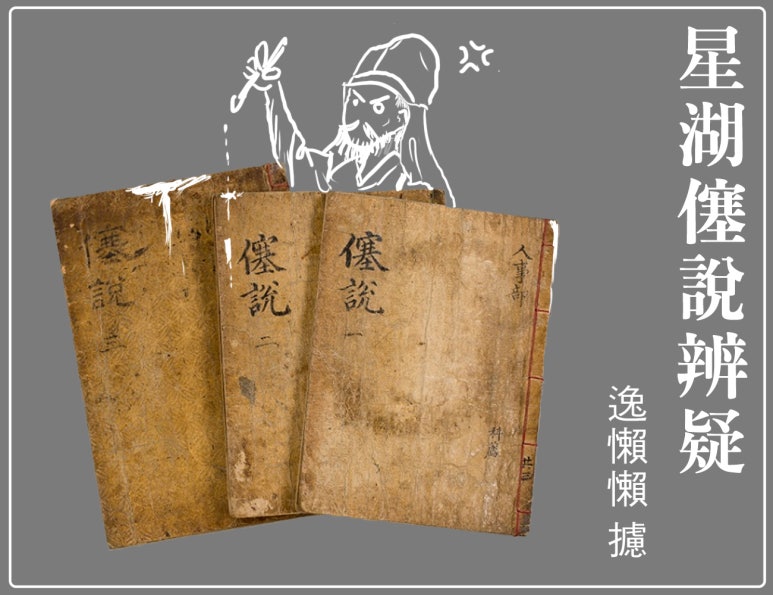 星湖僿說辨疑
逸懶懶 攄
人事部
科薦
共三
僿說 一
僿說 二
僿說 三